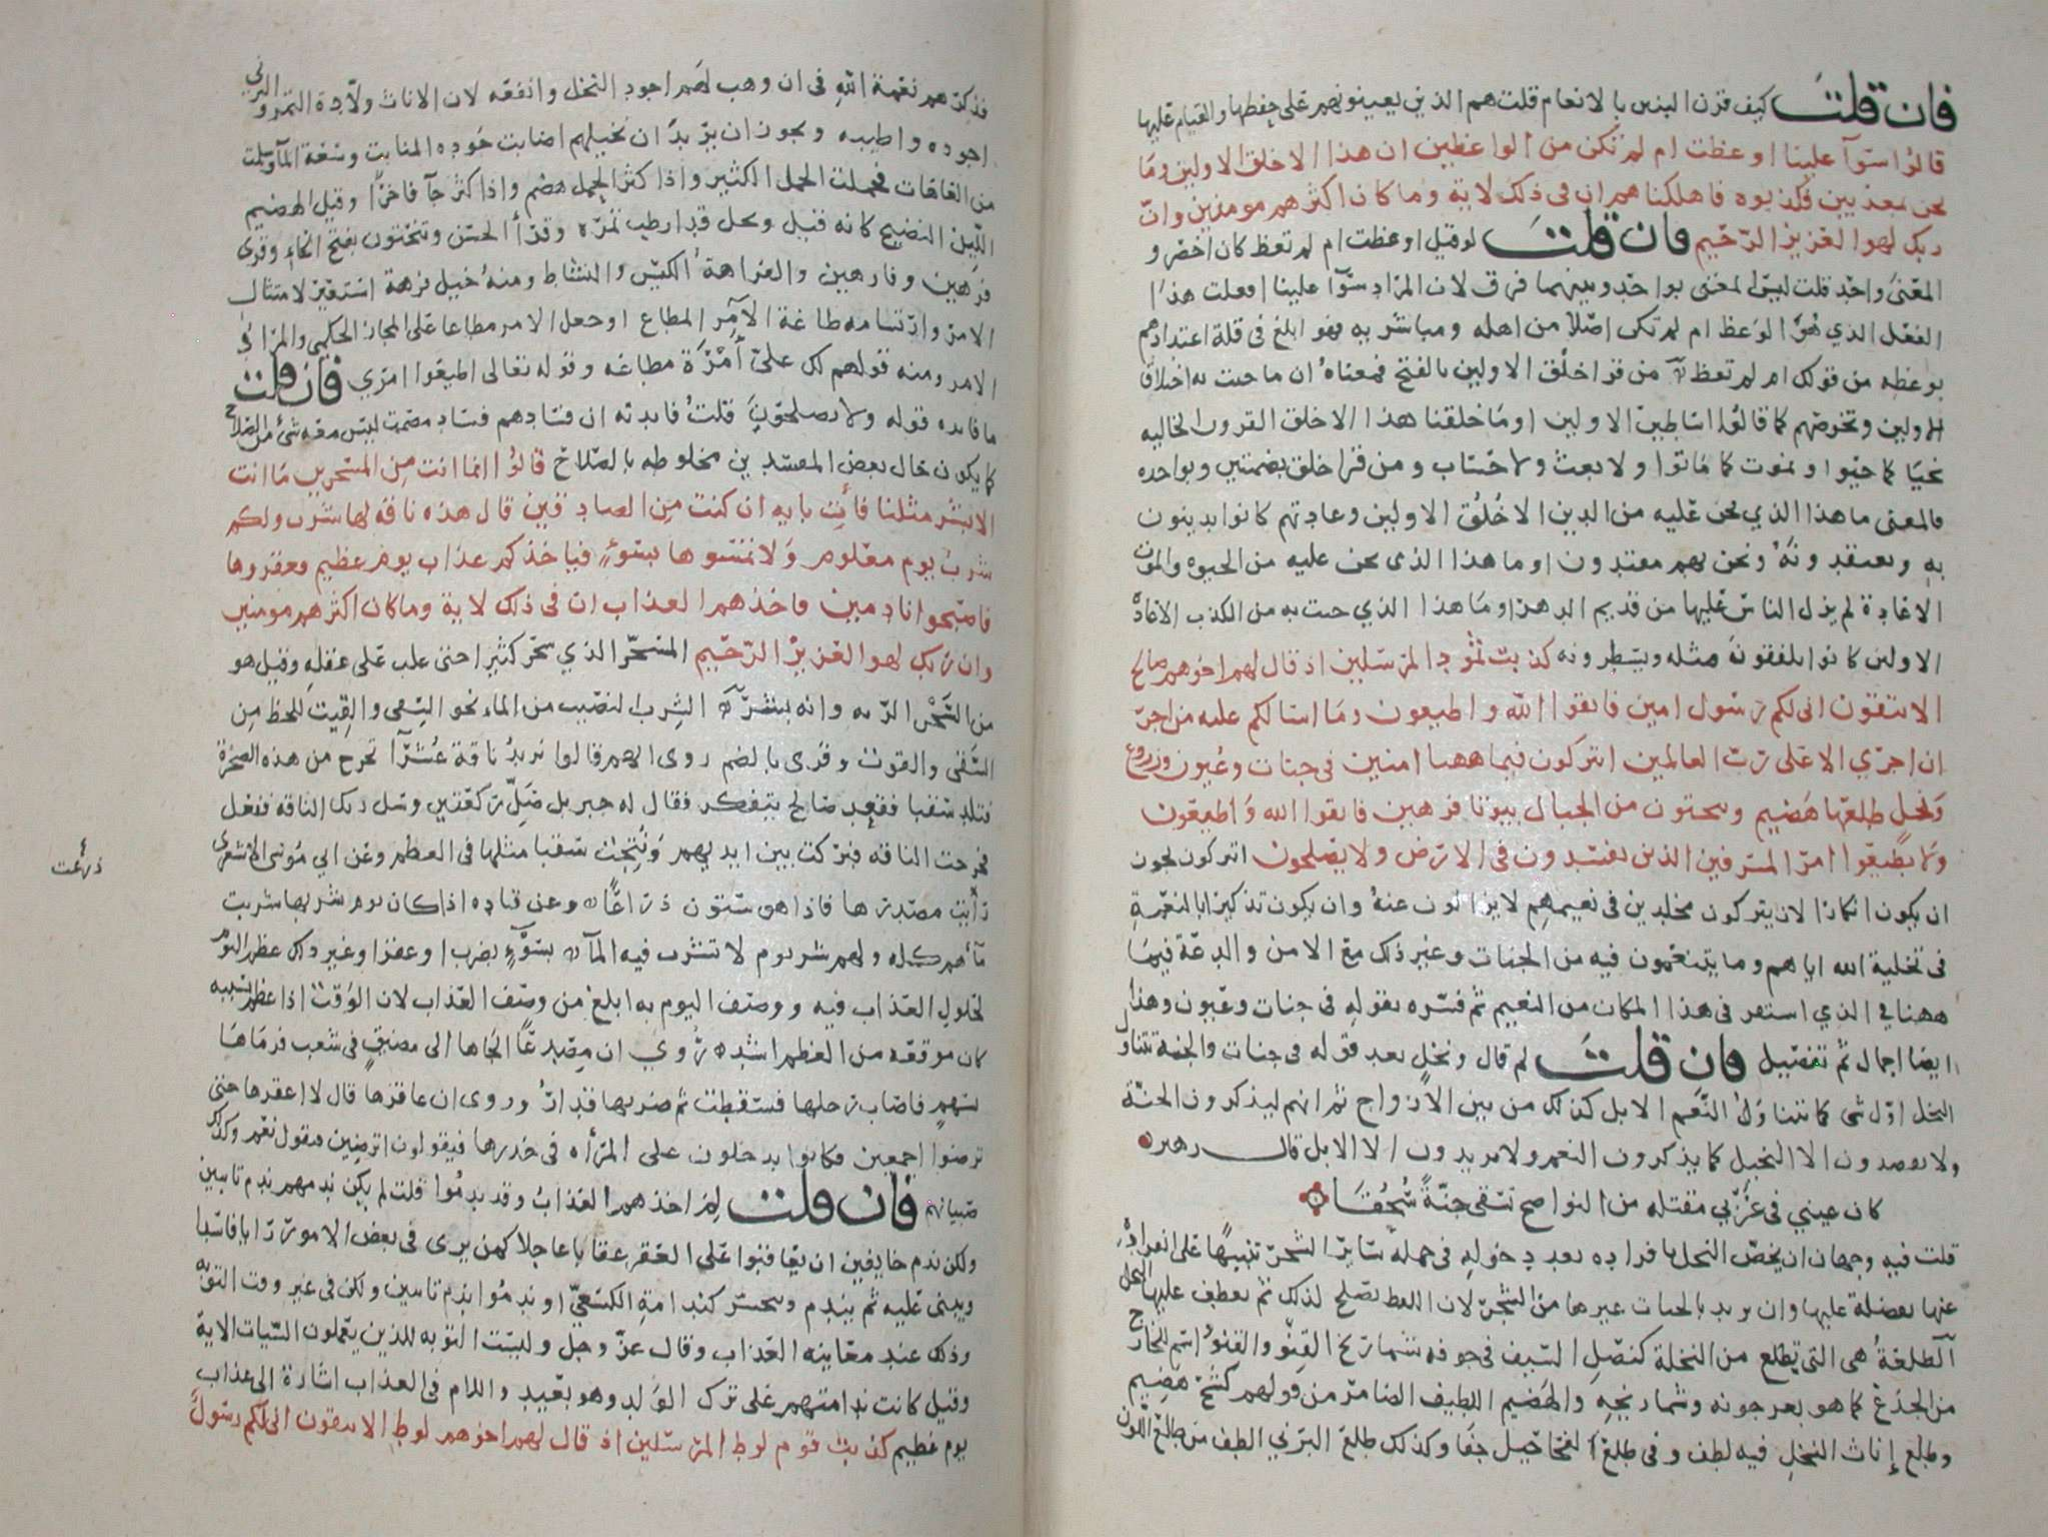 فان قلت كيف قرن البنين بالانعام قلت هم الذين يعينونهم على حفظها والقيام عليها
قالوا سوآ علينا اوعظت ام لم تكن من الواعظين ان هذا الا خلق الاولين وما
نحن بمعذبين فكذبوه فاهلكناهم ان فى ذلك لاية وما كان اكثرهم مومنين وان
ربك لهو العزيز الرحيم فان قلت لو قيل اوعظت ام لم تعظ كان اخضر و
المعنى واحد قلت ليس المعنى بواحد وبينهما فرق لان المراد سوآ علينا افعلت هذا
الفعل الذي هو الوعظ ام لم تكن اصلا من اهله ومباشريه فهو ابلغ فى قلة اعتدادهم
بوعظه من قولك ام لم تعظ من قرا خلق الاولين بالفتح فمعناه ان ما جيت به اختلاق
الاولين وتخرصهم كما قالوا اساطير الاولين او ما خلقنا هذا الا خلق القرون الخاليه
نحيا كما حيوا ونموت كما ماتوا ولا بعث ولا حساب ومن قرا خلق بضمتين وبواحده
فالمعنى ما هذا الذي نحن عليه من الدين الا خلق الاولين وعادتهم كانوا يدينون
به ويعتقدونه ونحن بهم مقتدون او ما هذا الذى نحن عليه من الحيوه والموت
الا عادة لم يزل الناس عليها من قديم الدهر او ما هذا الذي جيت به من الكذب الا عادة
الاولين كانوا يلفقون مثله ويسطرونه كذبت ثمود المرسلين اذ قال لهم اخوهم صالح
الا تتقون انى لكم رسول امين فاتقوا الله واطيعون وما اسالكم عليه من اجر
ان اجري الا على رب العالمين اتتركون فيما ههنا امنين فى جنات وعيون وزروع
ونخل طلعها هضيم وتنحتون من الجبال بيوتا فرهين فاتقوا الله واطيعون
ولا تطيعوا امر المسرفين الذين يفسدون فى الارض ولا يصلحون اتتركون يجوز
ان يكون انكارا لان يتركون مخلدين فى نعيمهم لا يزالون عنه وان يكون تذكيرا بالنعمة
فى تخلية الله اياهم وما يتنعمون فيه من الجنات وغير ذلك مع الامن والدعة فيما
ههنا في الذي استقر فى هذا المكان من النعيم ثم فسره بقوله فى جنات وعيون وهذا
ايضا اجمال ثم تفصيل فان قلت لم قال ونخل بعد قوله فى جنات والجنة تتناول
النخل اول شى كما تتناول النعم الابل كذلك من بين الازواج ثم انهم ليذكرون الجنة
ولا يقصدون الا النخيل كما يذكرون النعم ولا يريدون الا الابل قال زهير
كان عيني فى غربي مقتلة من النواضح تسقى جنة سحقا
قلت فيه وجهان ان يخص النخل بافراده بعد دخوله فى جملة ساير الشجر تنبيها على انفراده
عنها بفضله عليها وان يريد بالجنات غيرها من الشجر لان اللفظ يصلح لذلك ثم يعطف عليها النخل
الطلعة هى التى تطلع من النخلة كنصل السيف فى جوفه شماريخ القنو والقنو اسم للخارج
من الجذع كما هو بعرجونه وشماريخه والهضيم اللطيف الضامر من قولهم كشح هضيم
وطلع إناث النخل فيه لطف وفى طلع الفحاحيل جفا وكذلك طلع البرني الطف من طلع اللون
فذكرهم نعمة الله فى ان وهب لهم اجود النخل وانفعه لان الاناث ولادة التمر والبرني
اجوده واطيبه ويجوز ان يريد ان نخيلهم اصابت جوده المنابت وسعة المآ وسلمت
من العاهات فحملت الحمل الكثير واذا كثر الحمل هضم واذا كثر جآ فاخرا وقيل الهضيم
اللين النضيج كانه قيل ونخل قد ارطب ثمره وقرأ الحسن وتنحتون بفتح الحاء وقرى
فرهين وفارهين والفراهة الكيس والنشاط ومنه خيل فرهة استعير لامتثال
الامر وارتسامه طاعة الآمر المطاع او جعل الامر مطاعا على المجاز الحكمى والمراد
الامر ومنه قولهم لك على أمرة مطاعة وقوله تعالى اطيعوا امري فان قلت
ما فايده قوله ولا يصلحون قلت فايدته ان فسادهم فساد مصمت ليس معه شئ من الصلاح
كما يكون حال بعض المفسدين مخلوطه بالصلاح قالوا انما انت من المسحرين ما انت
الا بشر مثلنا فأت بايه ان كنت من الصادقين قال هذه ناقه لها شرب ولكم
شرب يوم معلوم ولا تمسوها بسوء فياخذكم عذاب يوم عظيم فعقروها
فاصبحوا نادمين فاخذهم العذاب ان فى ذلك لاية وما كان اكثرهم مومنين
وان ربك لهو العزيز الرحيم المسحر الذي سحر كثيرا حتى غلب على عقله وقيل هو
من السحر الريه وانه بشر الشرب النصيب من الماء نحو السقى والقيت للحظ من
السقى والقوت وقرى بالضم روى انهم قالوا نريد ناقة عشرآ تخرج من هذه الصخرة
فتلد سقبا فقعد صالح يتفكر فقال له جبريل صل ركعتين وسل ربك الناقه ففعل
فخرجت الناقه فبركت بين ايديهم ونتجت سقبا مثلها فى العظم وعن ابي موسى الاشعرى
رأيت مصدرها فاذا هو ستون ذراعا وعن قتاده اذا كان يوم شربها شربت
مآهم كله ولهم شرب يوم لا تشرب فيه المآ بسوء بضرب او عقر او غير ذلك عظم اليوم
لحلول العذاب فيه ووصف اليوم به ابلغ من وصف العذاب لان الوقت اذا عظم بسببه
كان موقعه من العظم اشد روي ان مصدعا الجاها الى مضيق فى شعب فرماها
بسهم فاصاب رجلها فسقطت ثم ضربها قدار وروى ان عاقرها قال لا اعقرها حتى
ترضوا اجمعين فكانوا يدخلون على المرأه فى خدرها فيقولون اترضين فتقول نعم وكذلك
صبيانهم فان قلت لم اخذهم العذاب وقد ندموا قلت لم يكن ندمهم ندم تايبين
ولكن ندم خايفين ان يعاقبوا على العقر عقابا عاجلا كمن يرى فى بعض الامور رايا فاسدا
ويبنى عليه ثم يندم ويتحسر كندامة الكسعي او ندموا ندم تايبين ولكن فى غير وقت التوبه
وذلك عند معاينه العذاب وقال عز وجل وليست التوبه للذين يعملون السيات الاية
وقيل كانت ندامتهم على ترك الولد وهو بعيد واللام فى العذاب اشارة الى عذاب
يوم عظيم كذبت قوم لوط المرسلين اذ قال لهم اخوهم لوط الا تتقون انى لكم رسول
ذرعت